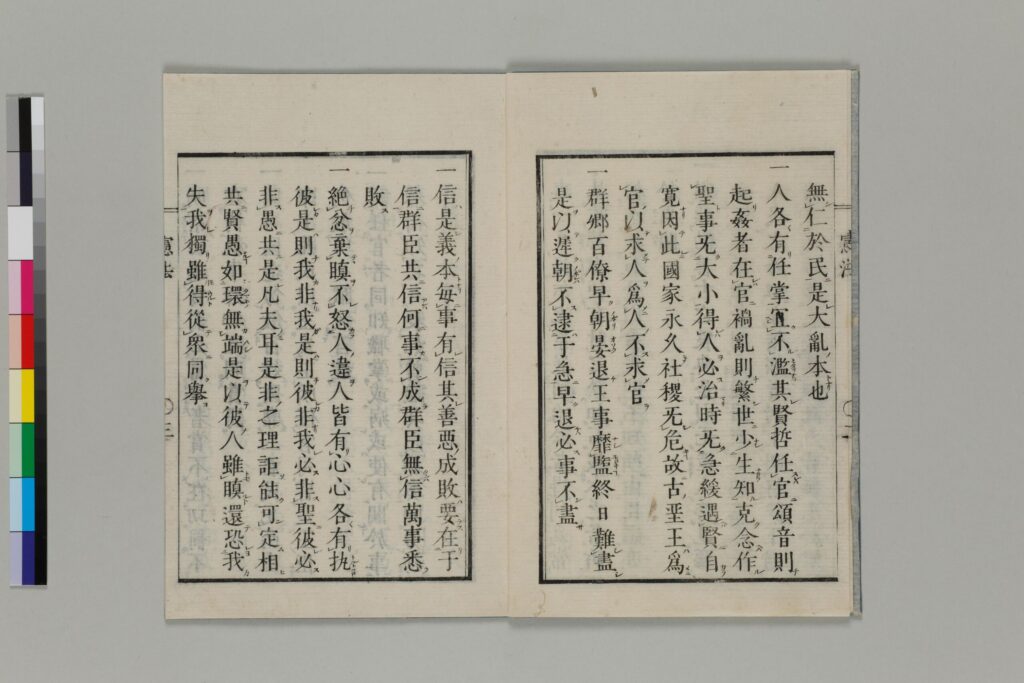 無仁於民是大亂本也
一人各有任掌宜不濫其賢哲任官頌音則
起姦者在官禍亂則繁世少生知克念作
聖事旡大小得人必治時旡急緩遇賢自
寛因此國家永久社稷旡危故古聖王爲
官以求人爲人不求官
一群卿百僚早朝晏退王事靡盬終日難盡
是以遲朝不逮于急早退必事不盡
憲法
〇二
一信是義本每事有信其善惡成敗要在于
信群臣共信何事不成群臣無信萬事悉
敗
一絶忿棄瞋不怒人違人皆有心心各有執
彼是則我非我是則彼非我必非聖彼必
非愚共是凡夫耳是非之理詎能可定相
共賢愚如環無端是以彼人雖瞋還恐我
失我獨雖得從衆同擧
憲法
〇三